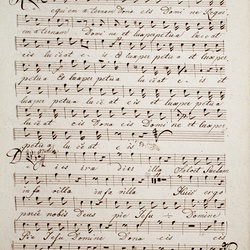 equiem aeternam Dona eis Domine Requi
em aeternam Domine et lux perpetua luceat
eis luceat eis et lux per
petua et lux per petua luceat eis et
lux per petua luceat eis luceat
eis Dona eis Domine et lux per
petua luceat eis
Dies irae Dies illa Solvet Saeclum
in favilla in favilla Huic ergo
parce nobis Deus pie Jesu Domine
Pie Jesu Domine Dona eis